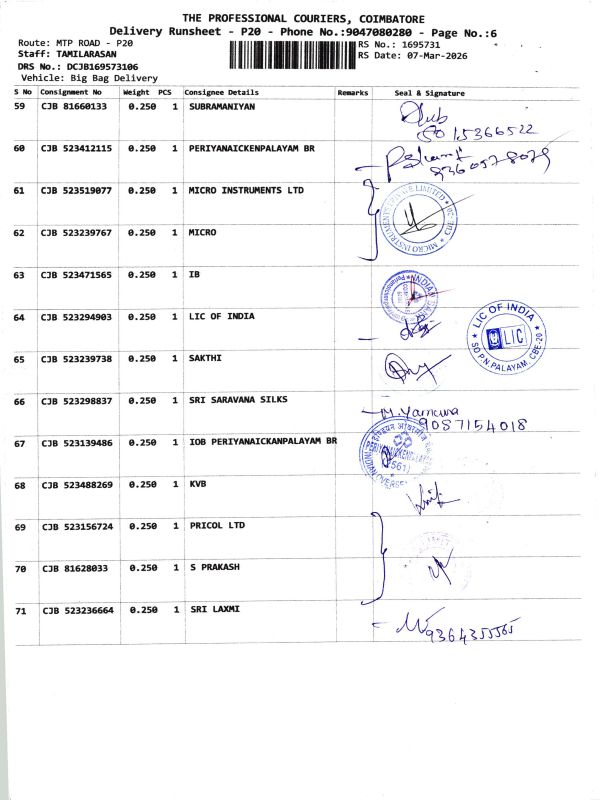 THE PROFESSIONAL COURIERS, COIMBATORE
Delivery Runsheet - P20 - Phone No.:9047080280 - Page No.:6
Route: MTP ROAD - P20
RS No.: 1695731
Staff: TAMILARASAN
RS Date: 07-Mar-2026
DRS No.: DCJB169573106
Vehicle: Big Bag Delivery
S No Consignment No Weight PCS Consignee Details Remarks Seal & Signature
59 CJB 81660133 0.250 1 SUBRAMANIYAN
8015366522
60 CJB 523412115 0.250 1 PERIYANAICKENPALAYAM BR
9360578079
61 CJB 523519077 0.250 1 MICRO INSTRUMENTS LTD
62 CJB 523239767 0.250 1 MICRO
63 CJB 523471565 0.250 1 IB
64 CJB 523294903 0.250 1 LIC OF INDIA
LIC OF INDIA
LIC
SO P.N.PALAYAM, CBE-20
65 CJB 523239738 0.250 1 SAKTHI
66 CJB 523298837 0.250 1 SRI SARAVANA SILKS
9087154018
67 CJB 523139486 0.250 1 IOB PERIYANAICKANPALAYAM BR
68 CJB 523488269 0.250 1 KVB
69 CJB 523156724 0.250 1 PRICOL LTD
70 CJB 81628033 0.250 1 S PRAKASH
71 CJB 523236664 0.250 1 SRI LAXMI
9364355565